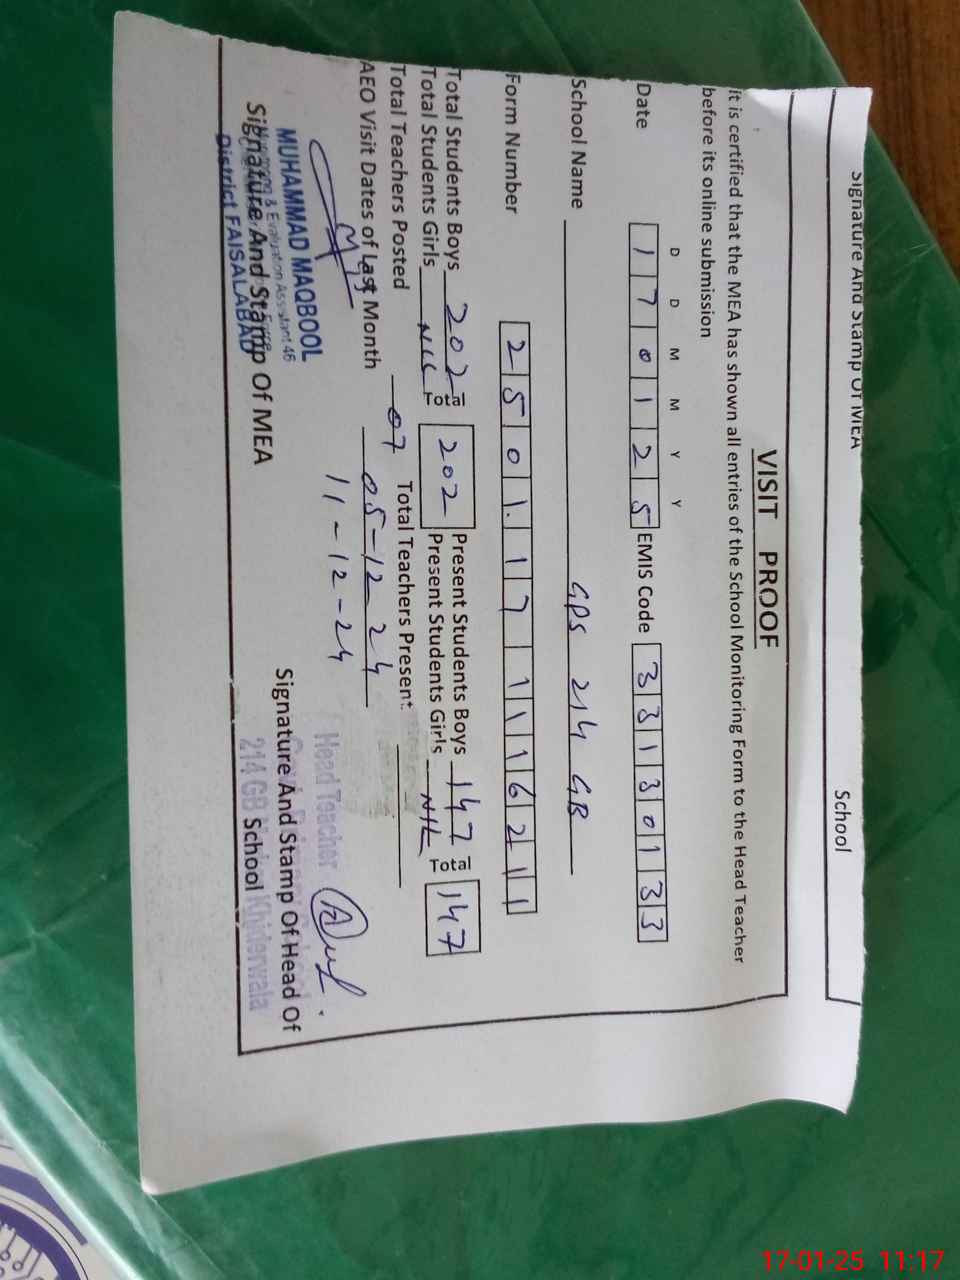 Signature And Stamp Of MEA School
VISIT PROOF
it is certified that the MEA has shown all entries of the School Monitoring Form to the Head Teacher
before its online submission
D D M M Y Y
Date 1 7 0 1 2 5 EMIS Code 3 3 1 3 0 1 3 3
School Name GPS 214 GB
Form Number 2 5 0 1 1 7 1 1 1 6 2 1 1
Total Students Boys 202 Total 202 Present Students Boys 147 Total 147
Total Students Girls NIL Present Students Girls NIL
Total Teachers Posted 07 Total Teachers Present
AEO Visit Dates of Last Month 05-12-24
11-12-24
MUHAMMAD MAQBOOL
Monitoring & Evaluation Assistant 46
District FAISALABAD
Signature And Stamp Of MEA
Head Teacher
Signature And Stamp Of Head Of
School
214 GB Khiderwala
17-01-25 11:17